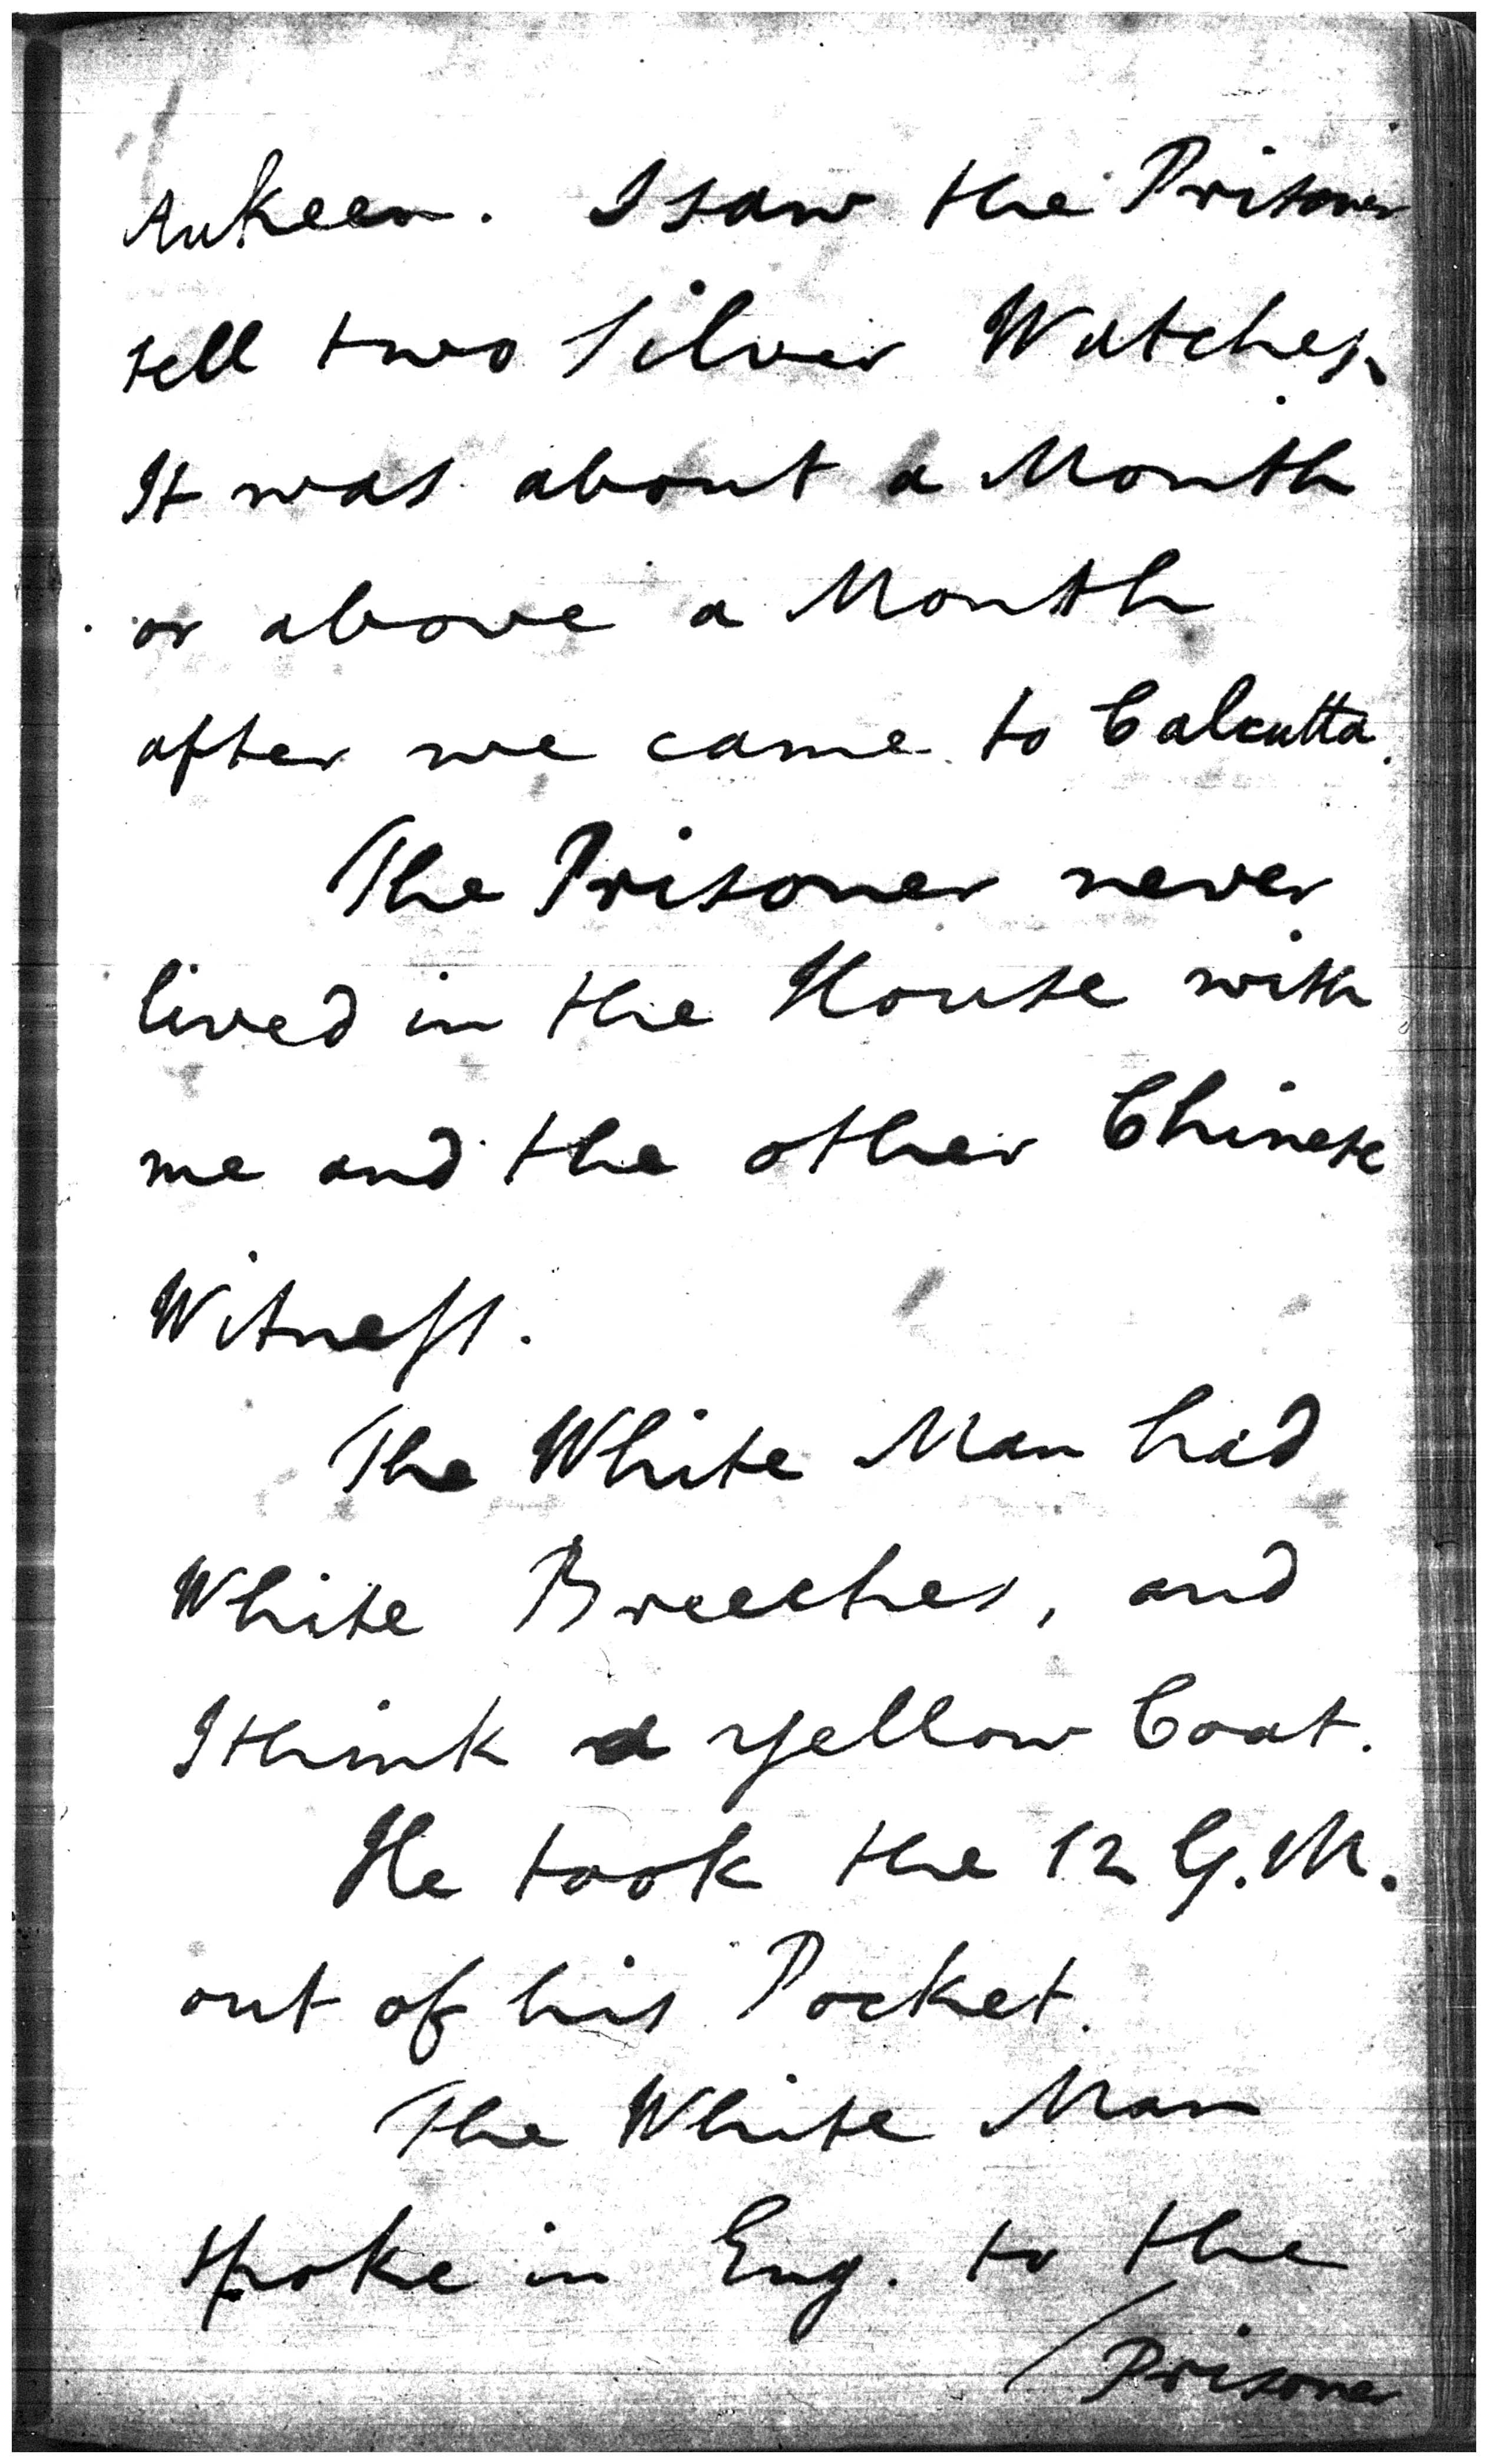 Aukeen. I saw the Prisoner
sell two Silver Watches.
It was about a Month
or above a Month
after we came to Calcutta.
The Prisoner never
lived in the House with
me and the other Chinese
Witness.
The White Man had
White Breeches, and
I think a yellow Coat.
He took the 12 G.M.
out of his Pocket.
The White Man
spoke in Eng. to the
/Prisoner